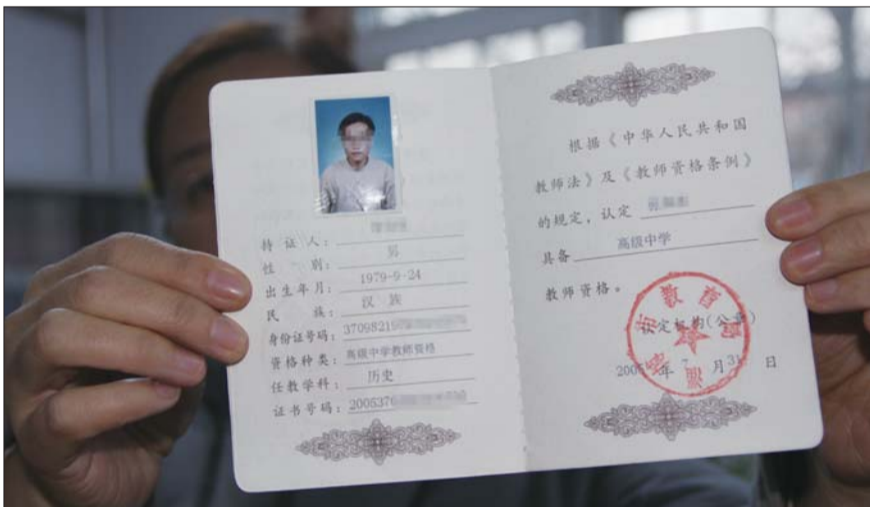 持证人：
性别：男
出生年月：1979-9-24
民族：汉族
身份证号码：37098219
资格种类：高级中学教师资格
任教学科：历史
证书号码：200537
根据《中华人民共和国
教师法》及《教师资格条例》
的规定，认定
具备 高级中学
教师资格。
认定机构(公章)
200 年 7 月 31 日
市教育局